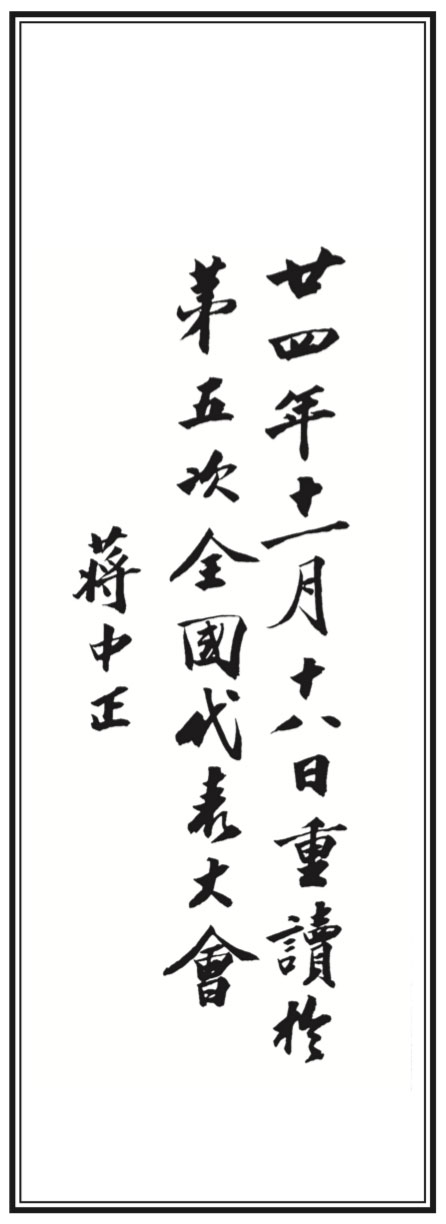 廿四年十一月十八日重讀於
第五次全國代表大會
蔣中正